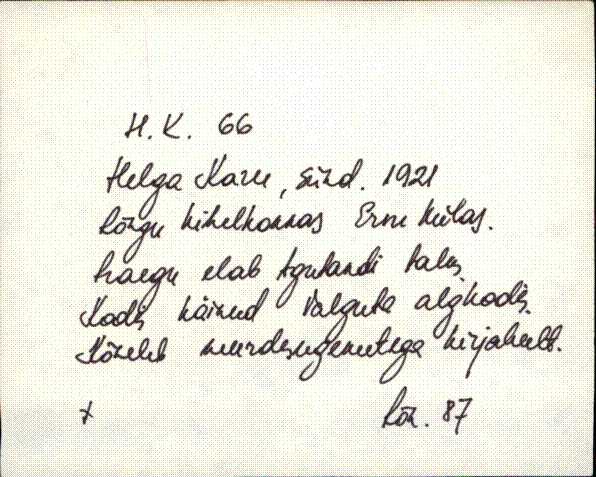 H.K. 66
Helga Karu, sünd. 1921
Rõngu kihelkonnas Ervu külas.
Praegu elab talus.
Koolis käinud Valguta algkoolis.
Kõneleb murdesugemetega kirjakeelt.
x Rõn. 87